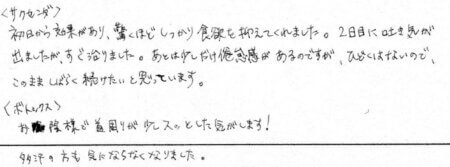 〈サクセンダ〉
初日から効果があり、驚くほどしっかり食欲を抑えてくれました。2日目に吐き気が
出ましたが、すぐ治りました。あとは少しだけ倦怠感があるのですが、ひどくはないので、
このまましばらく続けたいと思っています。
〈ボトックス〉
お陰様で首周りが少しスッとした気がします!
の方も気にならなくなりました。